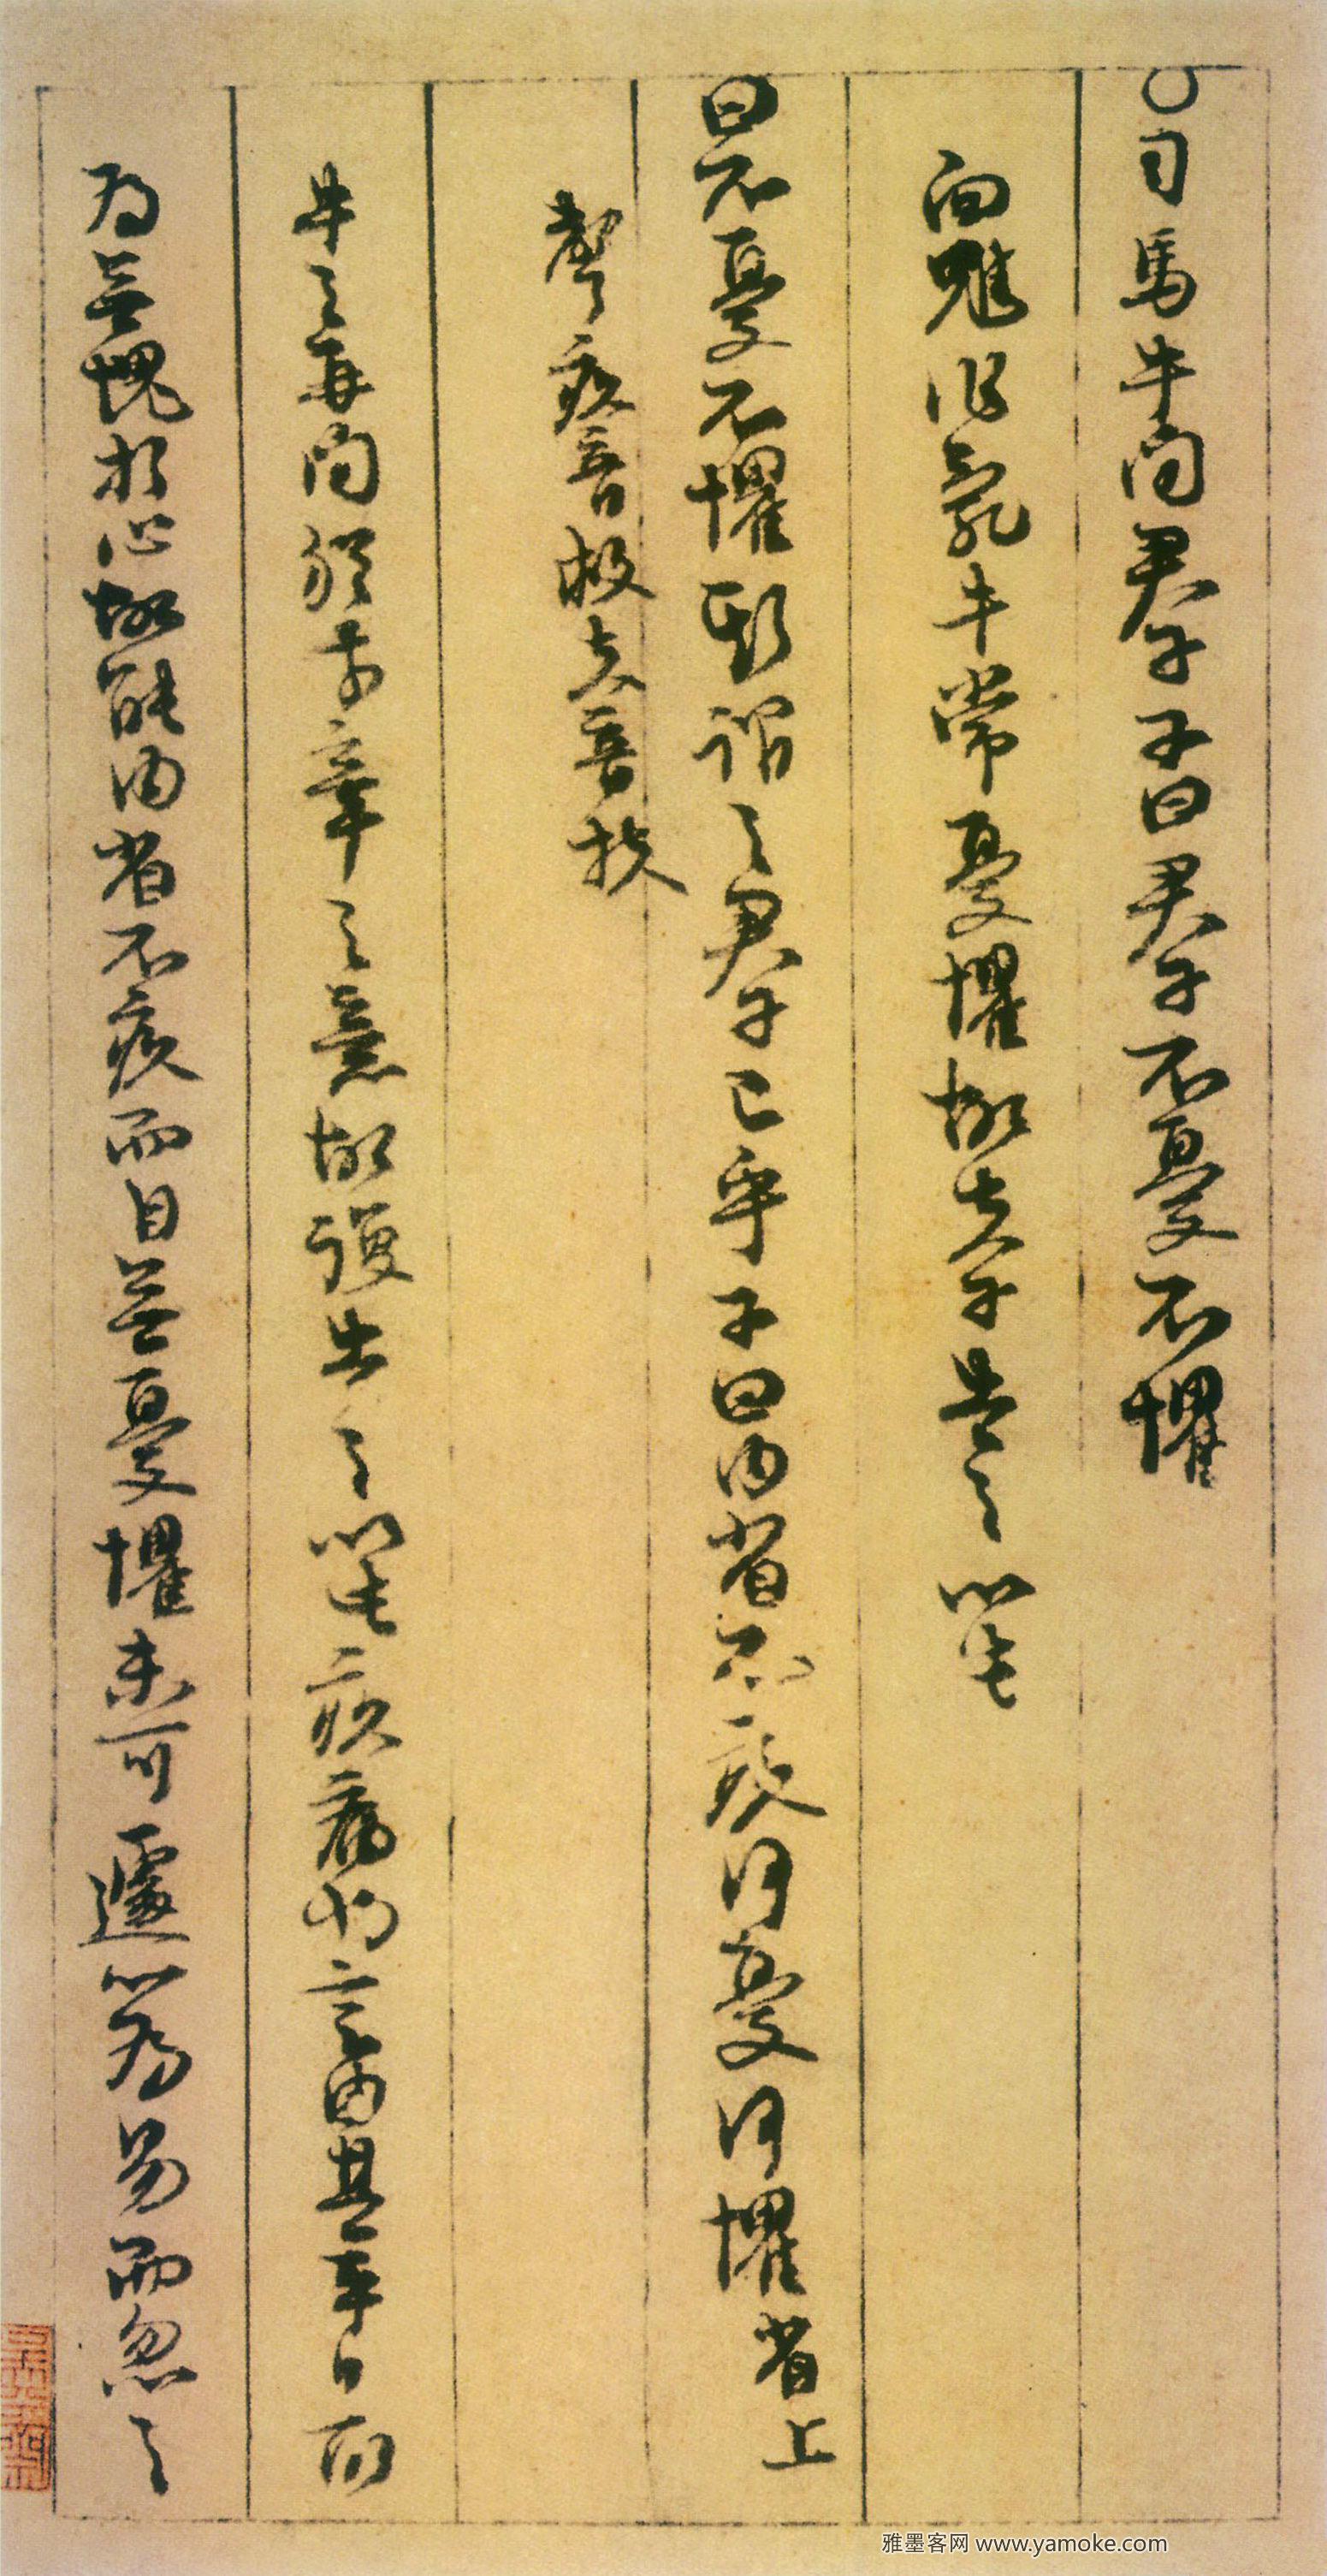 ○司馬牛問君子子曰君子不憂不懼
向魋作亂牛常憂懼故夫子告之以此
曰不憂不懼斯謂之君子已乎子曰内省不疚何憂何懼省上
聲疚音救夫音扶
牛之再問猶前章之意故復告之以此疚病也言由其平日所
為無愧於心故能内省不疚而自無憂懼未可遽以為易而忽之
雅墨客网 www.yamoke.com